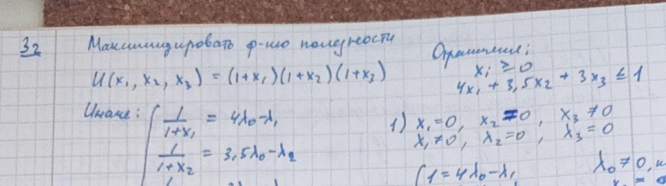 32 Максимизировать ф-ию полезности
U(x₁, x₂, x₃) = (1+x₁)(1+x₂)(1+x₃)
Ограничения:
xᵢ ≥ 0
4x₁ + 3,5x₂ + 3x₃ ≤ 1
Иначе:
1/(1+x₁) = 4λ₀-λ₁
1/(1+x₂) = 3,5λ₀-λ₂
1) x₁=0, x₂=0, x₃≠0
λ₁≠0, λ₂=0, λ₃=0
1 = 4λ₀-λ₁
λ₀≠0,